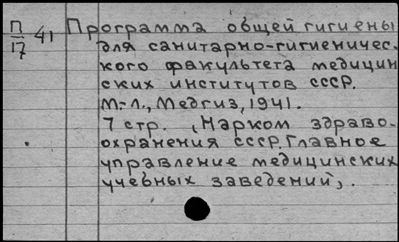 П/17 41 Программа общей гигиены
для санитарно-гигиеничес-
кого факультета медицин
ских институтов СССР.
М-Л., Медгиз, 1941.
7 стр. (Нарком здраво-
охранения СССР. Главное
управление медицинских
учебных заведений).